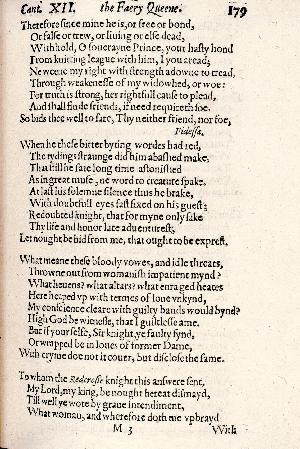 Cant. XII. the Faery Queene. 179
Therefore since mine he is, or free or bond,
Or false or trew, or liuing or else dead,
Withhold, O souerayne Prince, your hasty hond
From knitting league with him, I you aread;
Ne weene my right with strength adowne to tread,
Through weakenesse of my widowhed, or woe:
For truth is strong, her rightfull cause to plead,
And shall finde friends, if need requireth soe.
So bids thee well to fare, Thy neither friend, nor foe,
Fidessa.
When he these bitter byting wordes had red,
The tydings straunge did him abashed make,
That still he sate long time astonished
As in great muse, ne word to creature spake.
At last his solemne silence thus he brake,
With doubtfull eyes fast fixed on his guest;
Redoubted knight, that for myne only sake
Thy life and honor late aduenturest,
Let nought be hid from me, that ought to be exprest.
What meane these bloody vowes, and idle threats,
Throwne out from womanish impatient mynd?
What heuens? what altars? what enraged heates
Here heaped vp with termes of loue vnkynd,
My conscience cleare with guilty bands would bynd?
High God be witnesse, that I guiltlesse ame.
But if your selfe, Sir knight, ye faulty fynd,
Or wrapped be in loues of former Dame,
With cryme doe not it couer, but disclose the same.
To whom the Redcrosse knight this answere sent,
My Lord, my king, be nought hereat dismayd,
Till well ye wote by graue intendiment,
What woman, and wherefore doth me vpbrayd
M 3 With